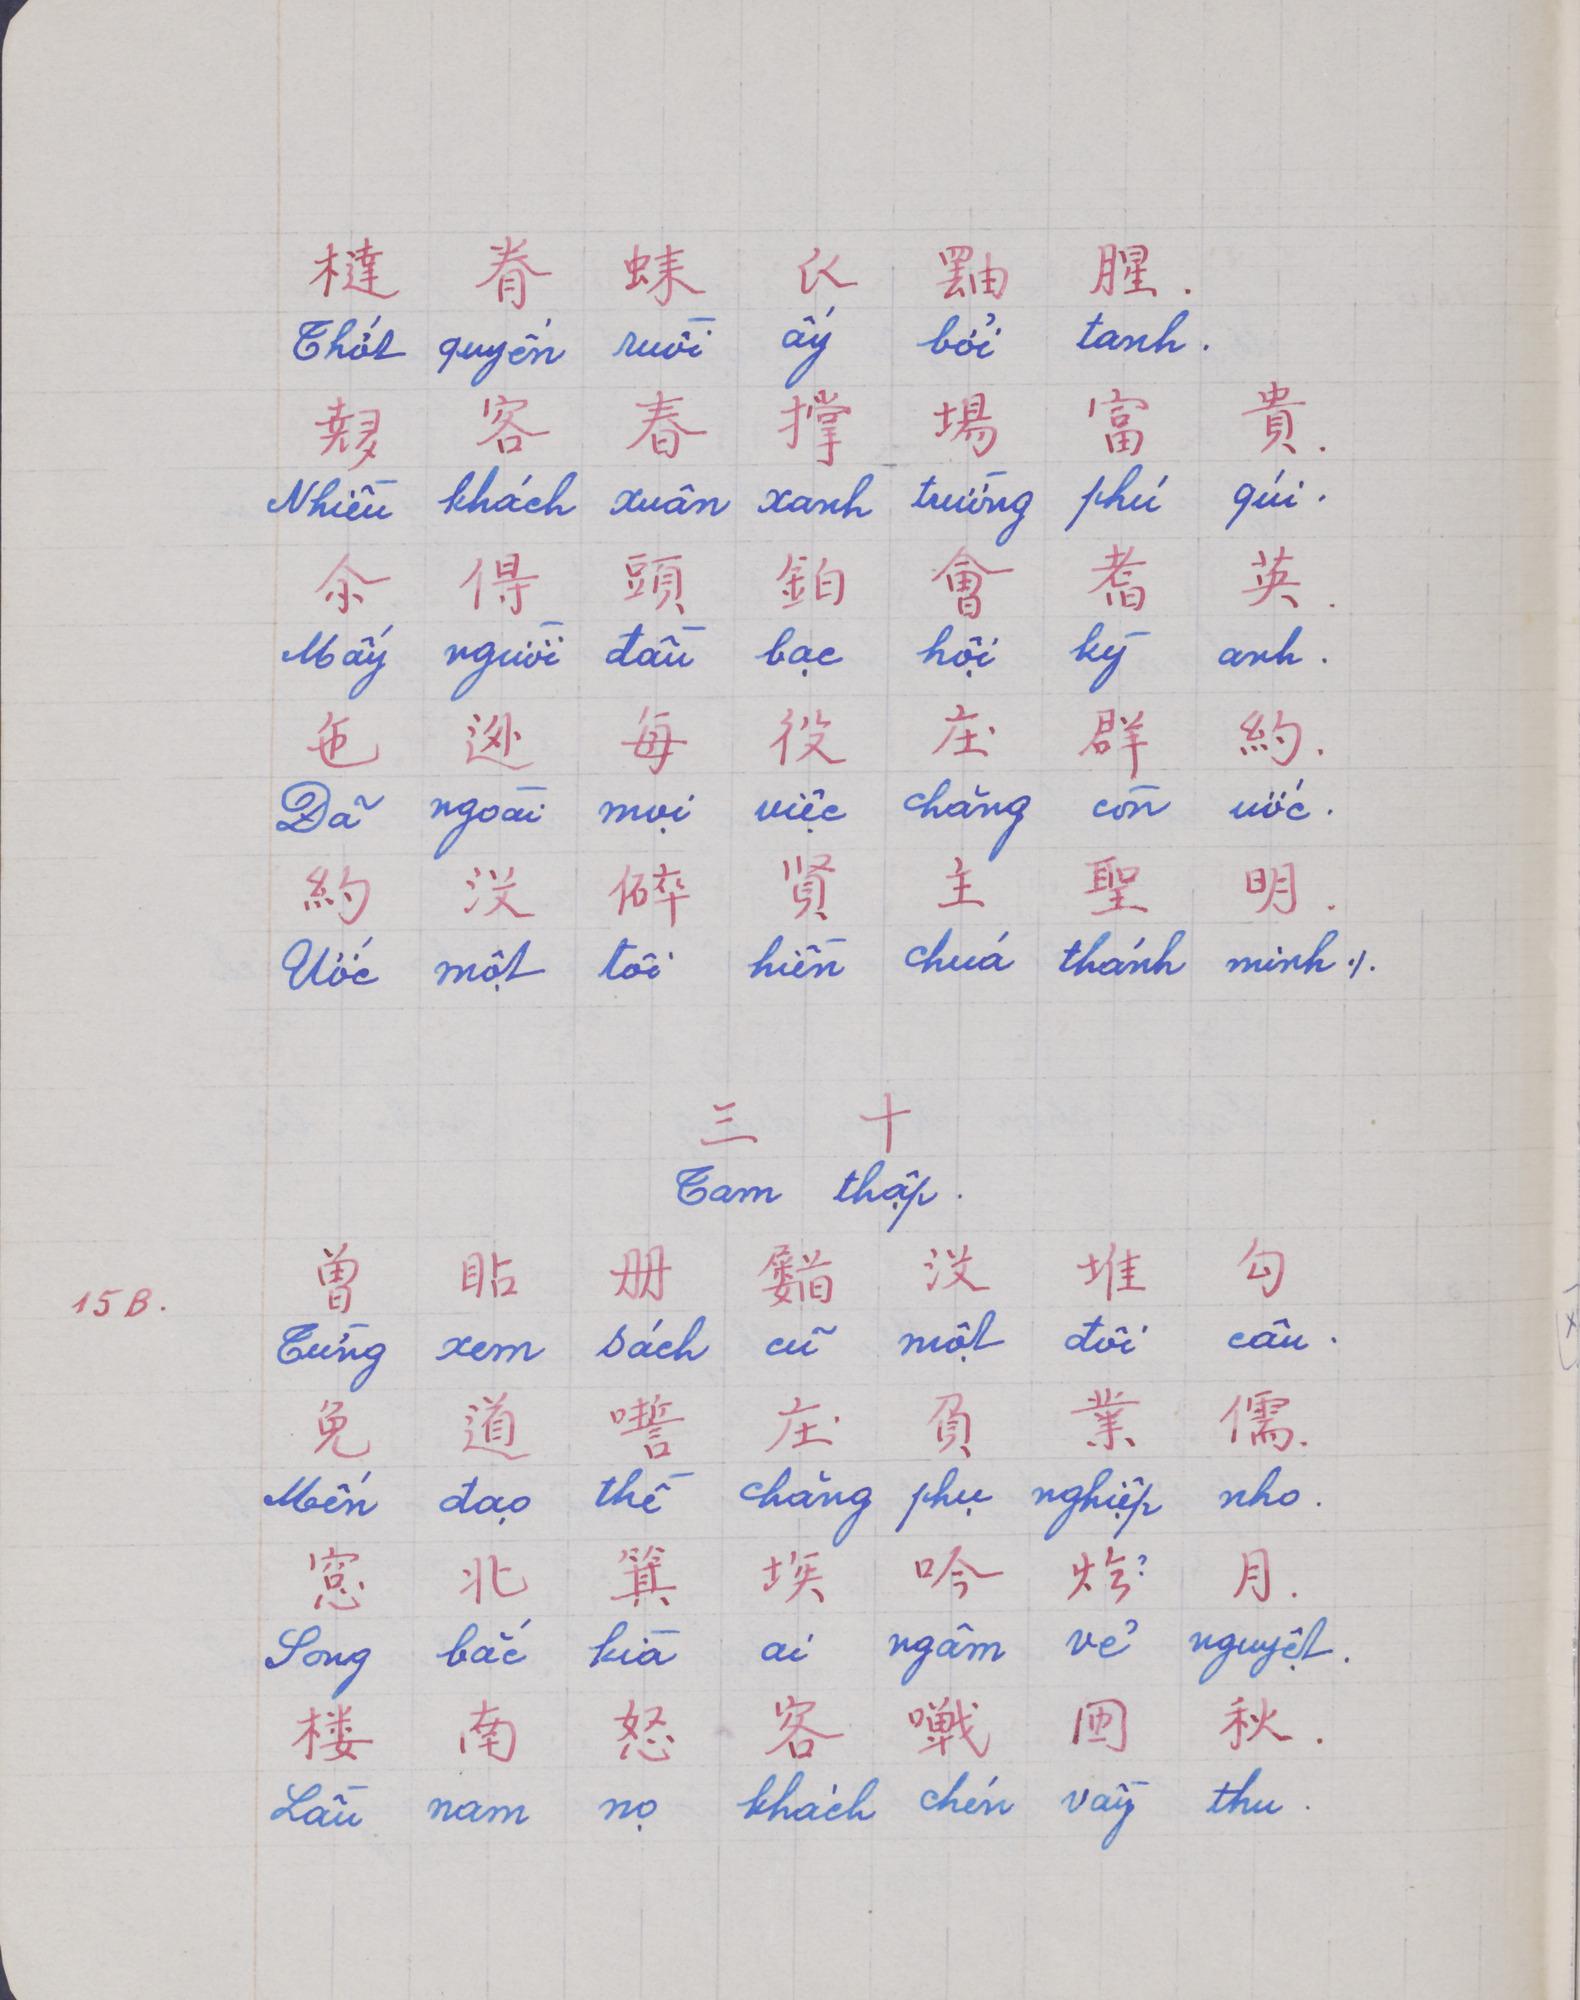 橽 眷 蝚 𱍸 𦋦 腥.
Thớt quyến ruồi ấy bởi tanh.
𡗊 客 春 撑 場 富 貴.
Nhiều khách xuân xanh trường phú qúi.
余 得 頭 鉑 會 耆 英.
Mấy người đầu bạc hội kỳ anh.
㐌 逊 每 役 庄 群 約.
Đã ngoài mọi việc chăng còn ước.
約 没 碎 賢 主 聖 明.
Ước một tôi hiền chuá thánh minh ./.
三 十
Tam thập.
曾 𥋳 册 𡳵 没 堆 勾
15B.
Từng xem sách cũ một đôi câu.
免 道 嚪 庄 負 業 儒.
Mến đạo thề chăng phụ nghiệp nho.
窓 北 箕 埃 吟 月.
Song bắc kià ai ngâm vẻ nguyệt.
楼 南 怒 客 囀 秋.
Lầu nam nọ khách chén vầy thu.